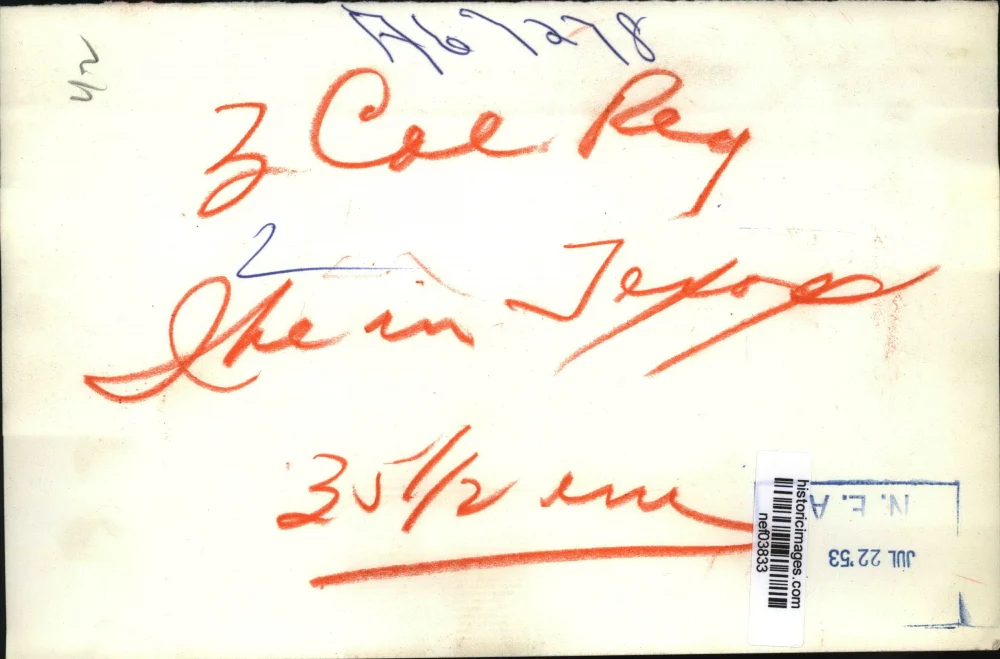 A67278
3 Col Reg
2
Ike in Texas
35 1/2 em
historicimages.com
nef03833
N.E.A
JUL 22 '53